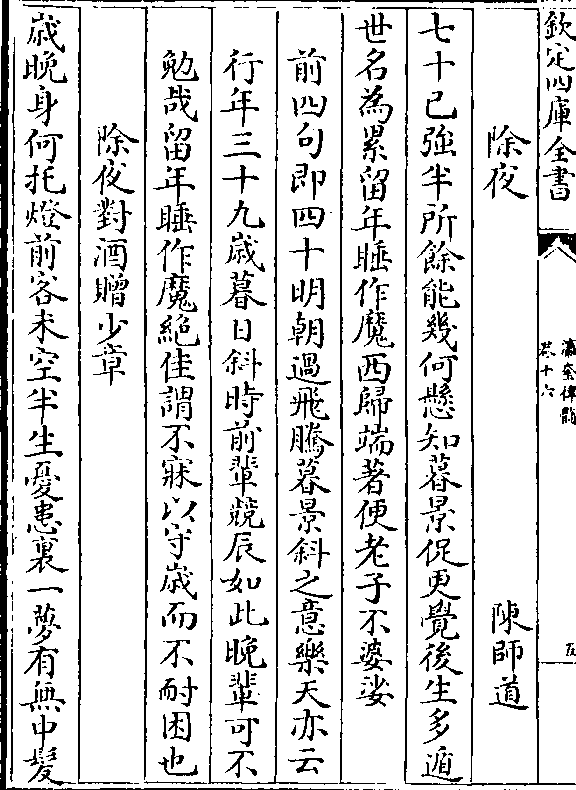 欽定四庫全書
瀛奎律髓
卷十六
五
除夜 陳師道
七十已強半所餘能幾何懸知暮景促更覺後生多遁
世名為累留年睡作魔西歸端著便老子不婆娑
前四句即四十明朝過飛騰暮景斜之意樂天亦云
行年三十九歲暮日斜時前輩競辰如此晚輩可不
勉哉留年睡作魔絕佳謂不寐以守歲而不耐困也
除夜對酒贈少章
歲晚身何托燈前客未空半生憂患裏一夢有無中髮